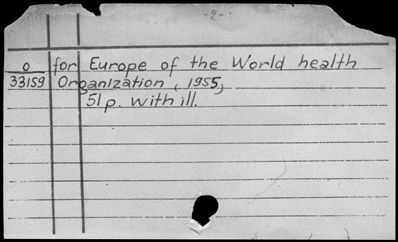 -2-
o for Europe of the World health
33159 Organization, 1955,
51 p. with ill.